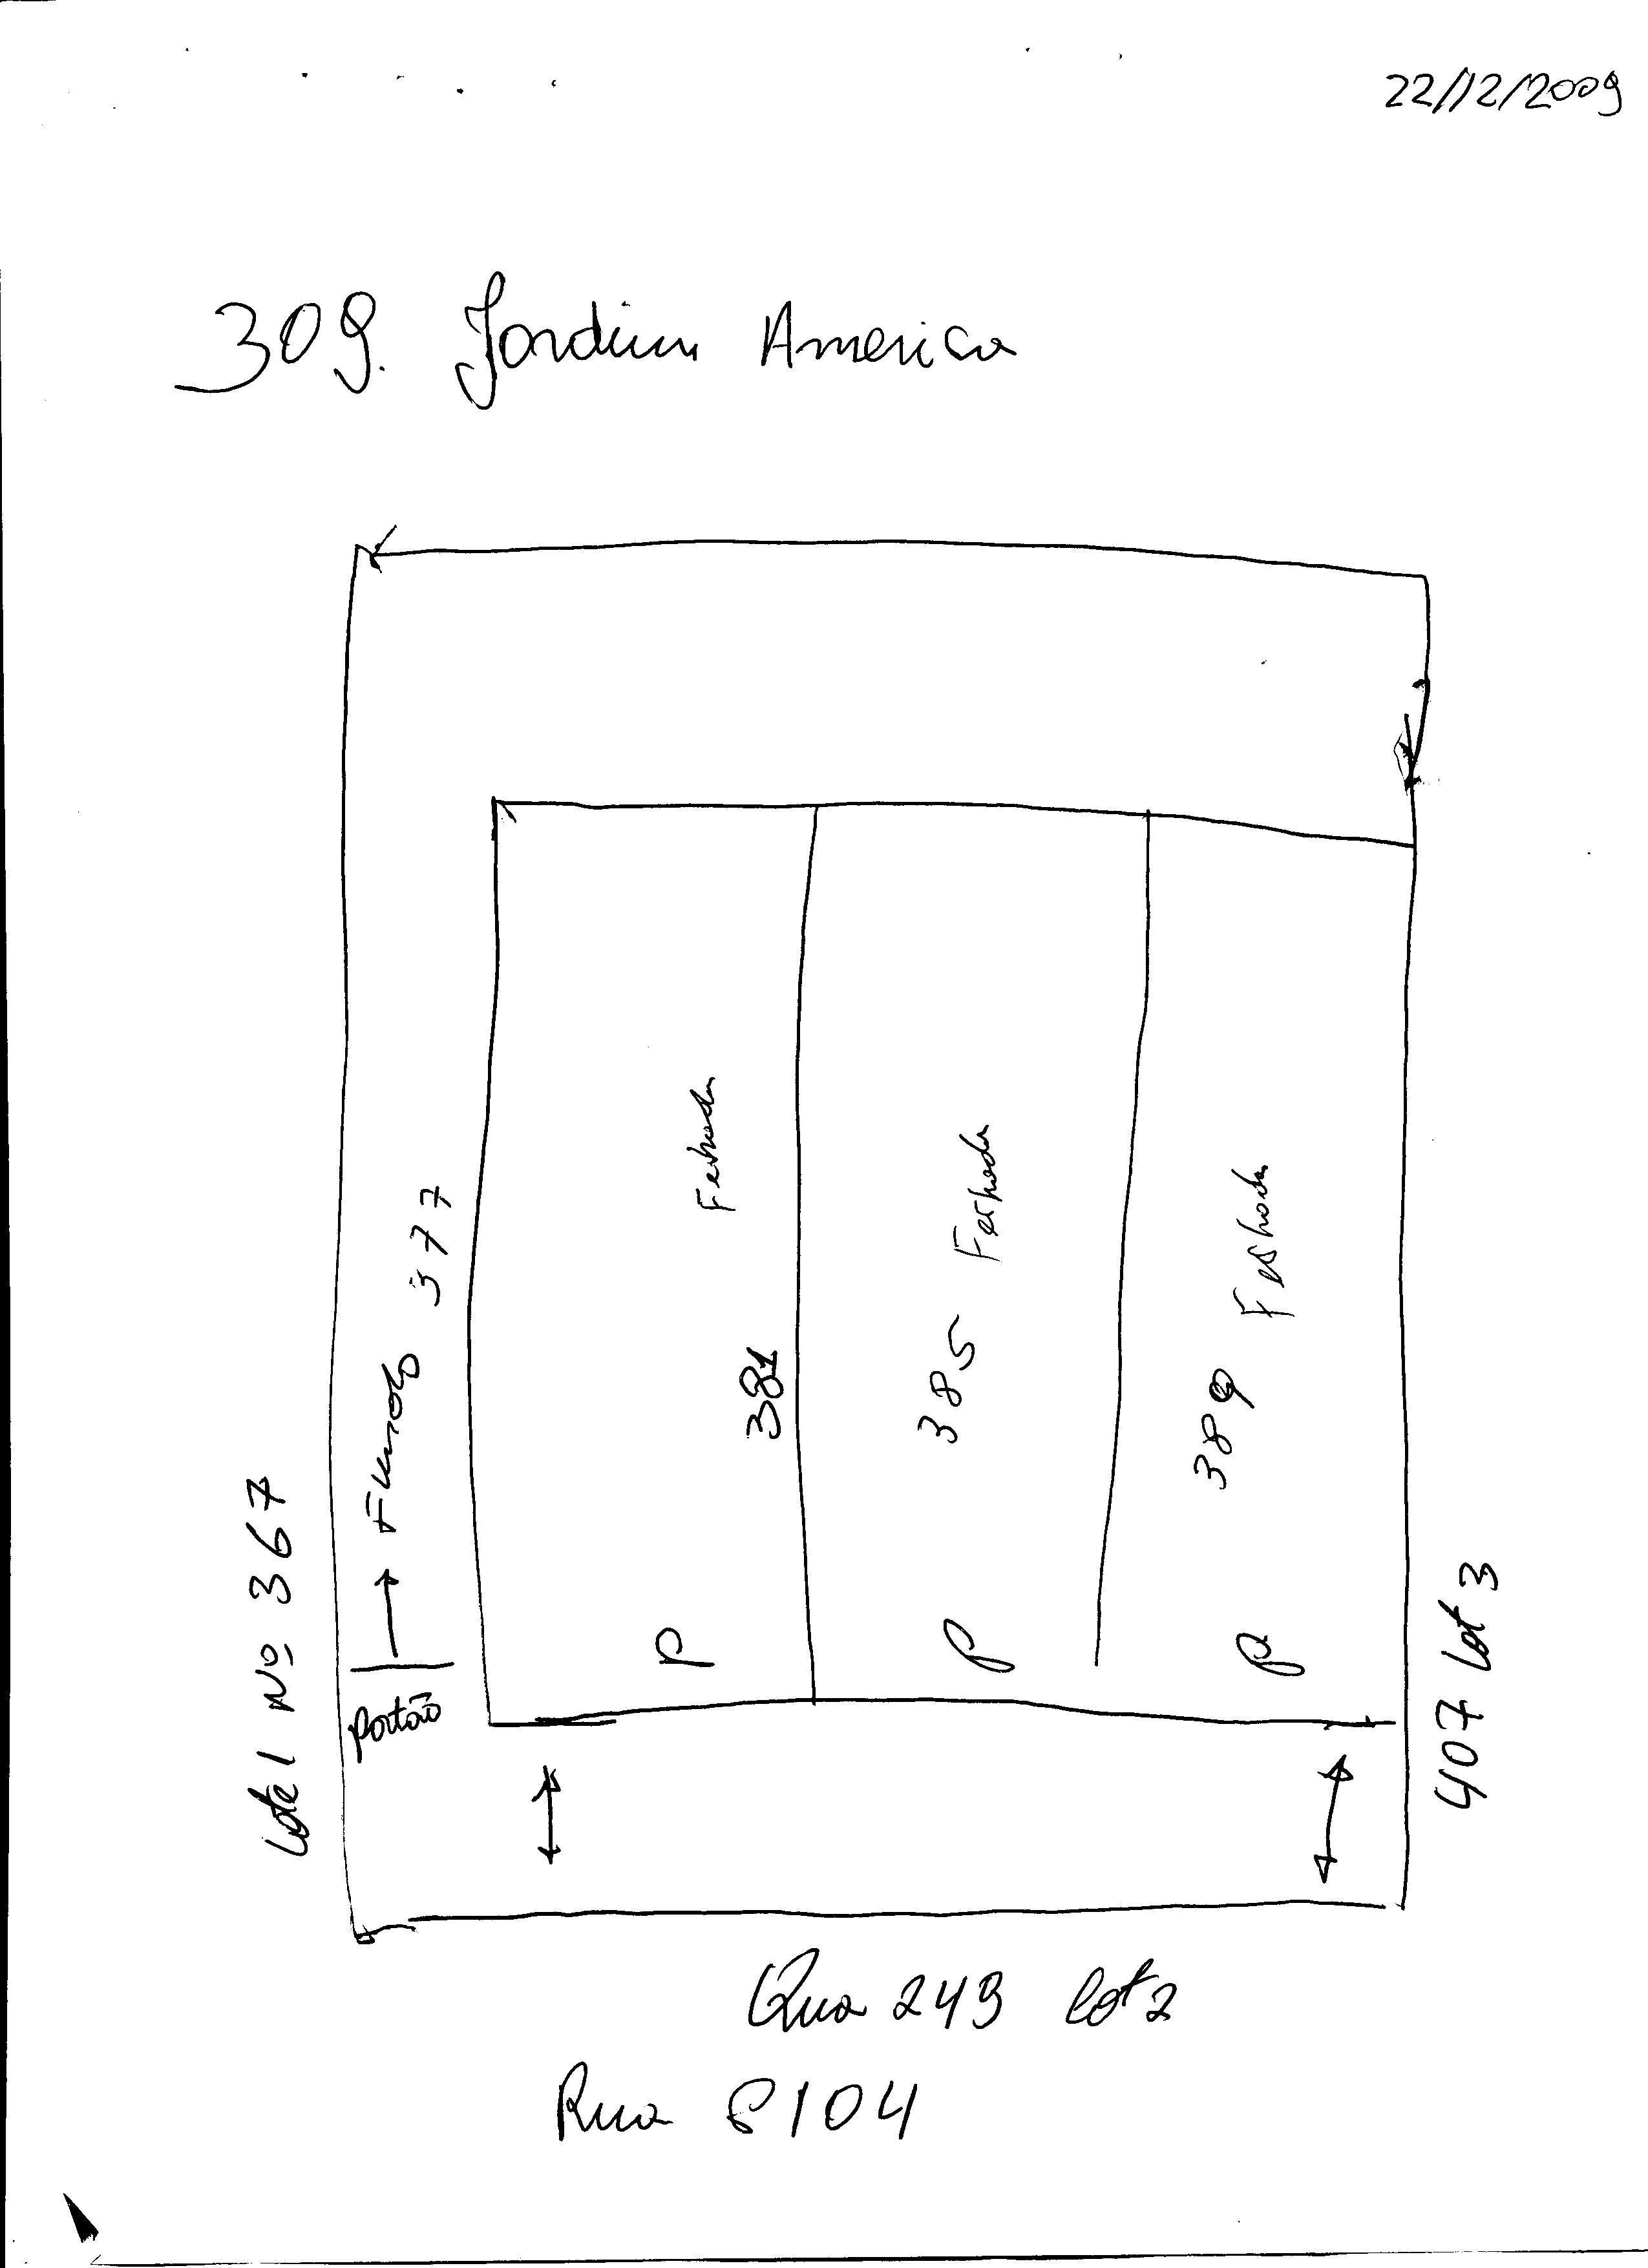 22/12/2009
309. Jardim America
Lote 1 Nº 367
Portão
Fundo 377
P 381 Fechada
P 385 Fechada
P 389 Fechada
407 Lot 3
Qua 249 Lot 2
Rua 8104